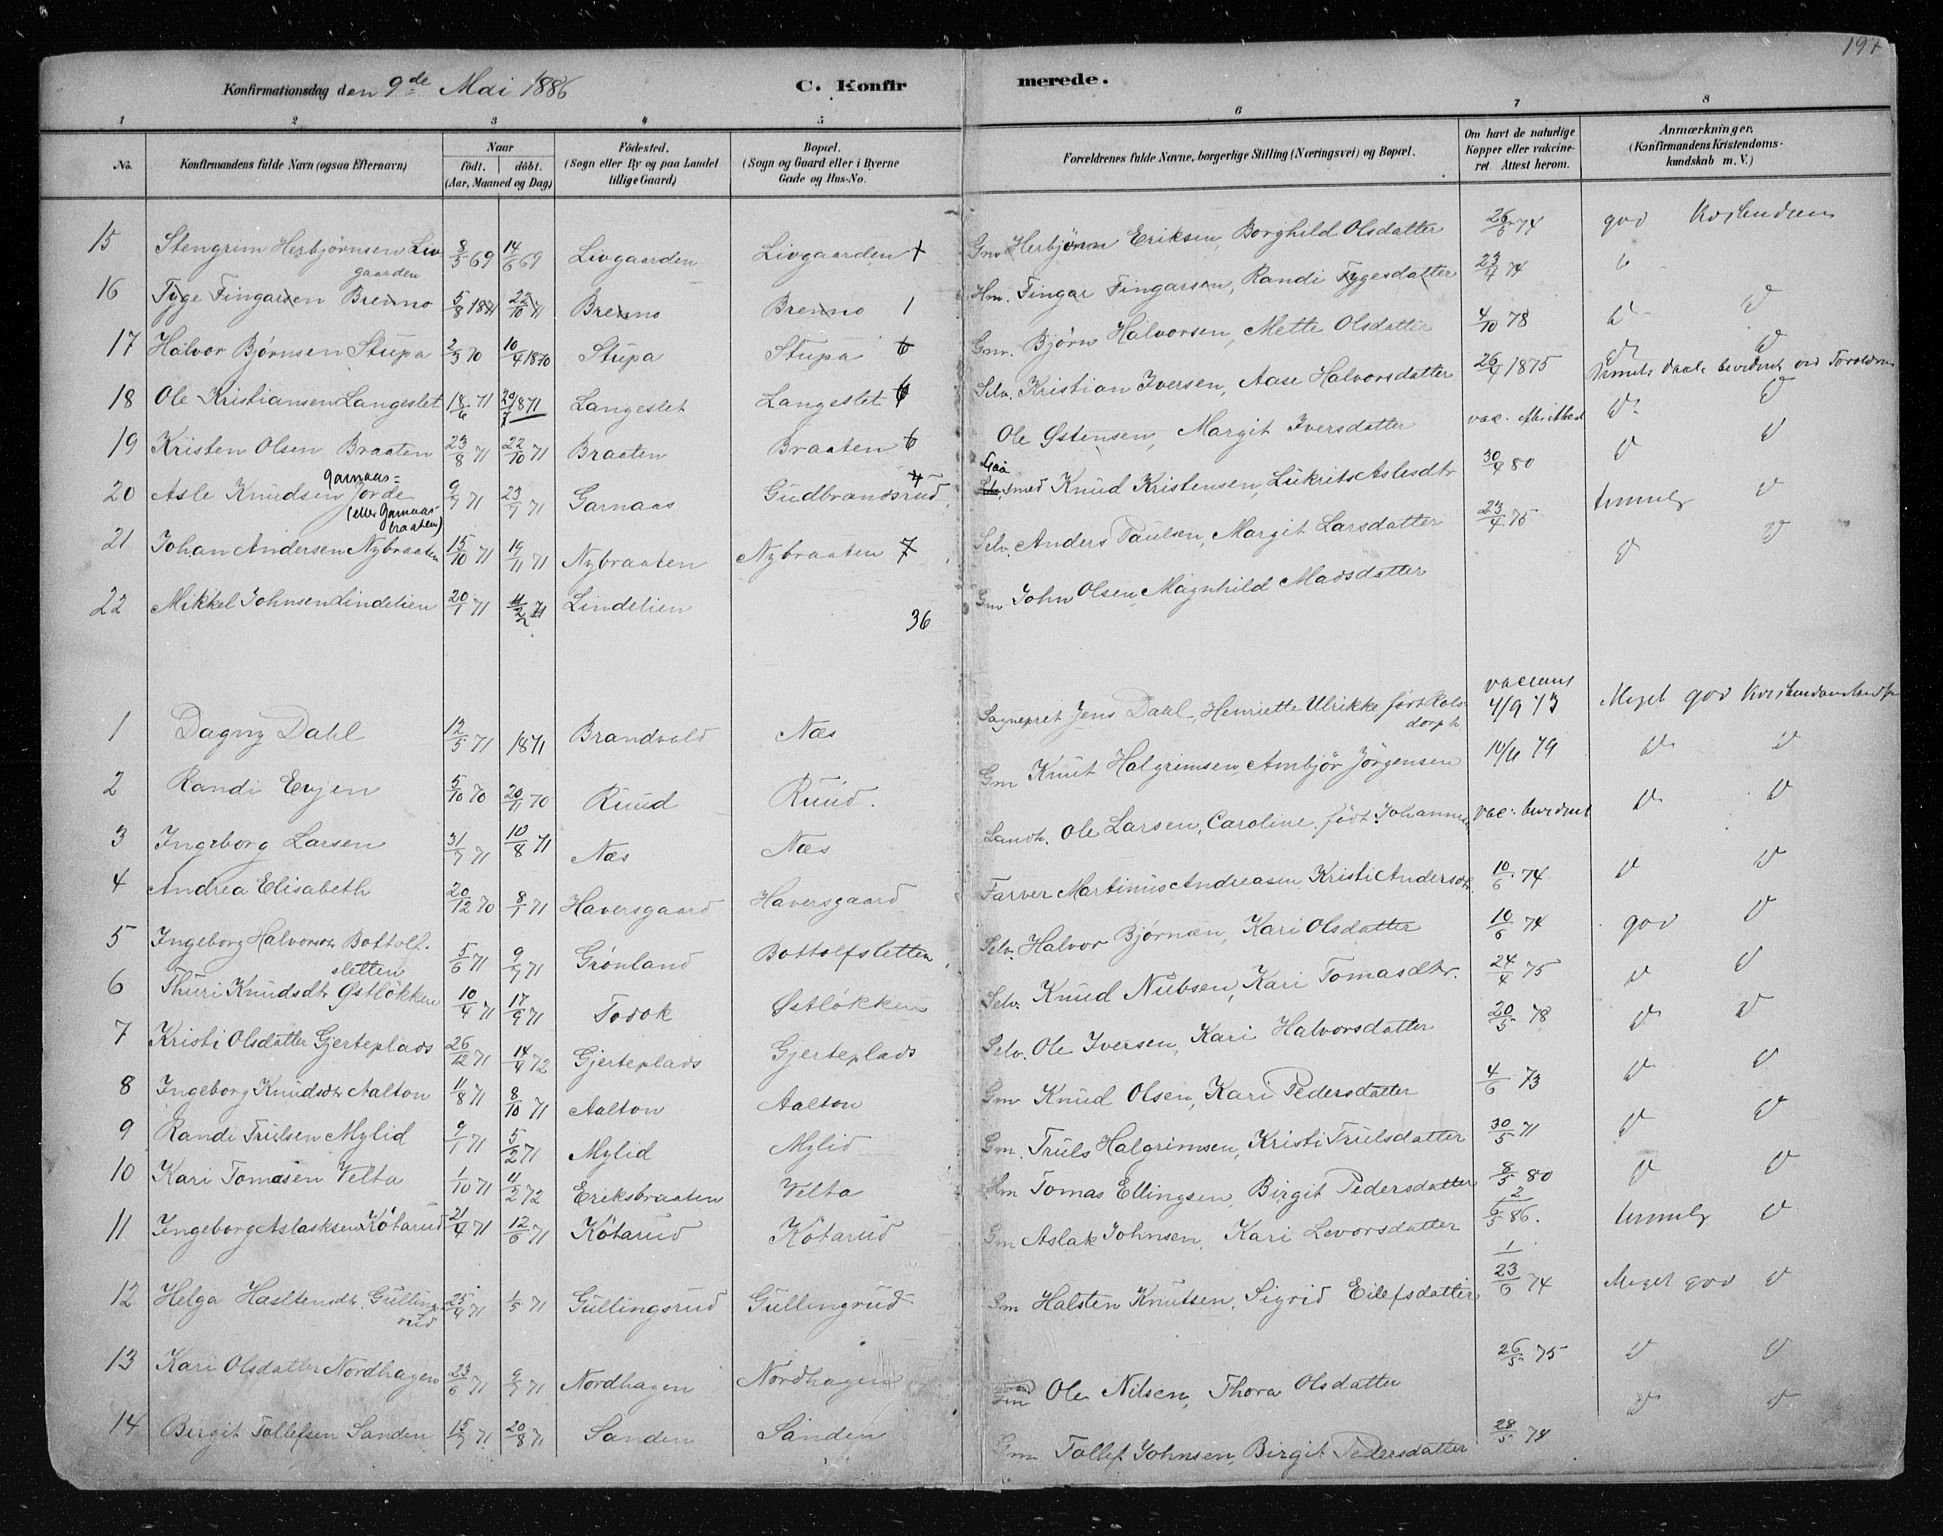 197
Konfirmationsdag den 9de Mai 1886 C. Konfirmerede.
1 2 3 4 5 6 7 8
No. Konfirmandens fulde Navn (ogsaa Efternavn) Naar født. døbt. (Aar, Maaned og Dag) Fødested. (Sogn eller By og paa Landet tillige Gaard) Bopæl. (Sogn og Gaard eller i Byerne Gade og Hus-No. Forældrenes fulde Navne, borgerlige Stilling (Næringsvei) og Bopæl. Om havt de naturlige Kopper eller vakcineret. Attest herom. Anmærkninger. (Konfirmandens Kristendomskundskab m. V.)
15 Stengrim Herbjørnsen Livgaarden 8/5 69 14/6 69 Livgaarden Livgaarden + Gm Herbjørn Eriksen, Borghild Olsdatter 26/5 74 god
16 Tyge Fingarsen Brenno 5/8 1871 22/10 71 Brenno Brenno 1 Hm. Fingar Fingarsen, Randi Tygesdatter 23/4 74
17 Halvor Bjørnsen Stupa 2/3 70 10/4 1870 Stupa Stupa 6 Gm. Bjørn Halvorsen, Mette Olsdatter 4/10 78
18 Ole Kristiansen Langeslet 18/6 71 29/7 1871 Langeslet Langeslet 6 Selv. Kristian Iversen, Aase Halvorsdatter 26/9 1875
19 Kristen Olsen Braaten 23/8 71 22/10 71 Braaten Braaten 6 Ole Østensen, Margit Iversdatter vac.
20 Asle Knudsen Garnaas-Jorde (eller Garnaasbraaten) 9/7 71 23/7 71 Garnaas Gudbrandsrud 7 smed Knud Kristensen, Lukrits Aslesdtr 30/4 80
21 Johan Andersen Nybraaten 15/10 71 19/11 71 Nybraaten Nybraaten 7 Selv. Anders Paulsen, Margit Larsdatter 23/4 75
22 Mikkel Johnsen Lindelien 20/1 71 11/2 71 Lindelien Gm John Olsen, Magnhild Madsdatter
36
1 Dagny Dahl 12/5 71 1871 Brandvold Næs Sognepret Jens Dahl, Henriette Ulrikke født Holsdorph 4/9 73 Meget god
2 Randi Evjen 5/10 70 20/11 70 Ruud Ruud. Gm Knut Halgrimsen, Ambjør Jörgensen 10/6 79
3 Ingeborg Larsen 31/7 71 10/8 71 Næs Næs Landh. Ole Larsen, Caroline, født Johannes vac.
4 Andrea Elisabeth 20/12 70 8/1 71 Haversgaard Haversgaard Farver Martinus Andreasen, Kristi Andersdtr. 10/6 74
5 Ingeborg Halvorsdtr Bottolfsletten 5/6 71 9/7 71 Grønland Bottolfsletten Selv. Halvor Bjørnsen, Kari Olsdatter 10/6 74 god
6 Thuri Knudsdtr Østløkken 10/4 71 17/9 71 Todok Østløkken Selv. Knud Nubsen, Kari Tomasdtr. 24/4 75
7 Kristi Olsdatter Gjerteplads 26/12 71 14/4 72 Gjerteplads Gjerteplads Selv. Ole Iversen, Kari Halvorsdatter 20/5 78
8 Ingeborg Knudsdtr Aalton 11/8 71 8/10 71 Aalton Aalton Gm Knud Olsen, Kari Pedersdatter 4/6 73
9 Randi Trulsen Mylid 9/1 71 5/2 71 Mylid Mylid Gm. Truls Halgrimsen, Kristi Trulsdatter 30/5 71
10 Kari Tomasen Velta 1/10 71 11/2 72 Eriksbraaten Velta Hm Tomas Ellingsen, Birgit Pedersdatter 8/5 80
11 Ingeborg Aslaksen Kötarud 21/4 71 12/6 71 Kötarud Kötarud Gm Aslak Johnsen, Kari Levorsdatter 6/5 86.
12 Helga Hasltensdtr. Gullingsrud 25/4 71 1/5 71 Gullingsrud Gullingrud Gm Halsten Knutsen, Sigrid Eilefsdatter 23/6 74 Meget god
13 Kari Olsdatter Nordhagen 23/6 71 9/7 71 Nordhagen Nordhagen Gm Ole Nilsen, Thora Olsdatter 26/5 75
14 Birgit Tollefsen Sanden 15/7 71 20/8 71 Sanden Sanden Gm Tollef Johnsen, Birgit Pedersdatter 28/5 74